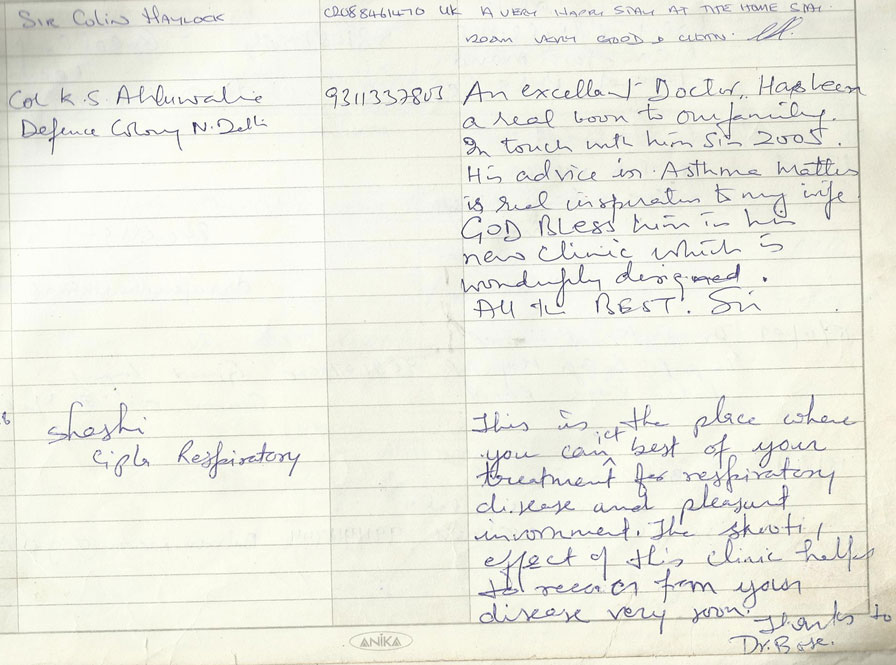 SIR COLIN HAYLOCK
02088461470 UK
A VERY HAPPY STAY AT THE HOME STAY.
ROOM VERY GOOD & CLEAN.
Col K. S. Ahluwalia
Defence Colony N. Delhi
9311337803
An excellant Doctor. Has been
a real boon to our family.
In touch with him Sin 2005.
His advice in Asthma Matters
is real inspiration to my wife
GOD BLess him in his
new clinic which is
wonderfully designed.
All the BEST. Sir
Shashi
Cipla Respiratory
This is the place where
you can best of your
treatment for respiratory
disease and pleasant
invornment. The
effect of this clinic helps
to recover from your
disease very soon.
Thanks to
Dr. Bose.
ANIKA